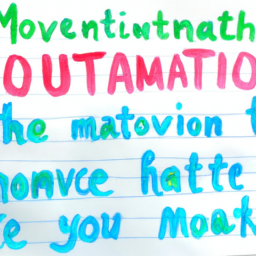 Moventintnath
OUTAMATIO
he matovion t
honvce hatte
e you Moak